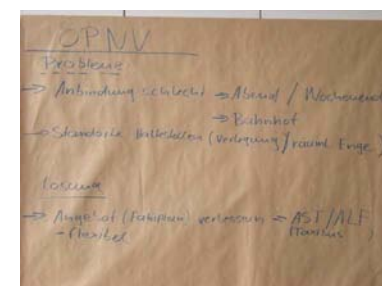 ÖPNV
Probleme
→ Anbindung schlecht → Abend / Wochenend
→ Bahnhof
→ Standorte Haltestellen (Verlegung / räuml. Enge)
Lösung
→ Angebot (Fahrplan) verbessern → AST/ALF
- flexibel (Taxibus)